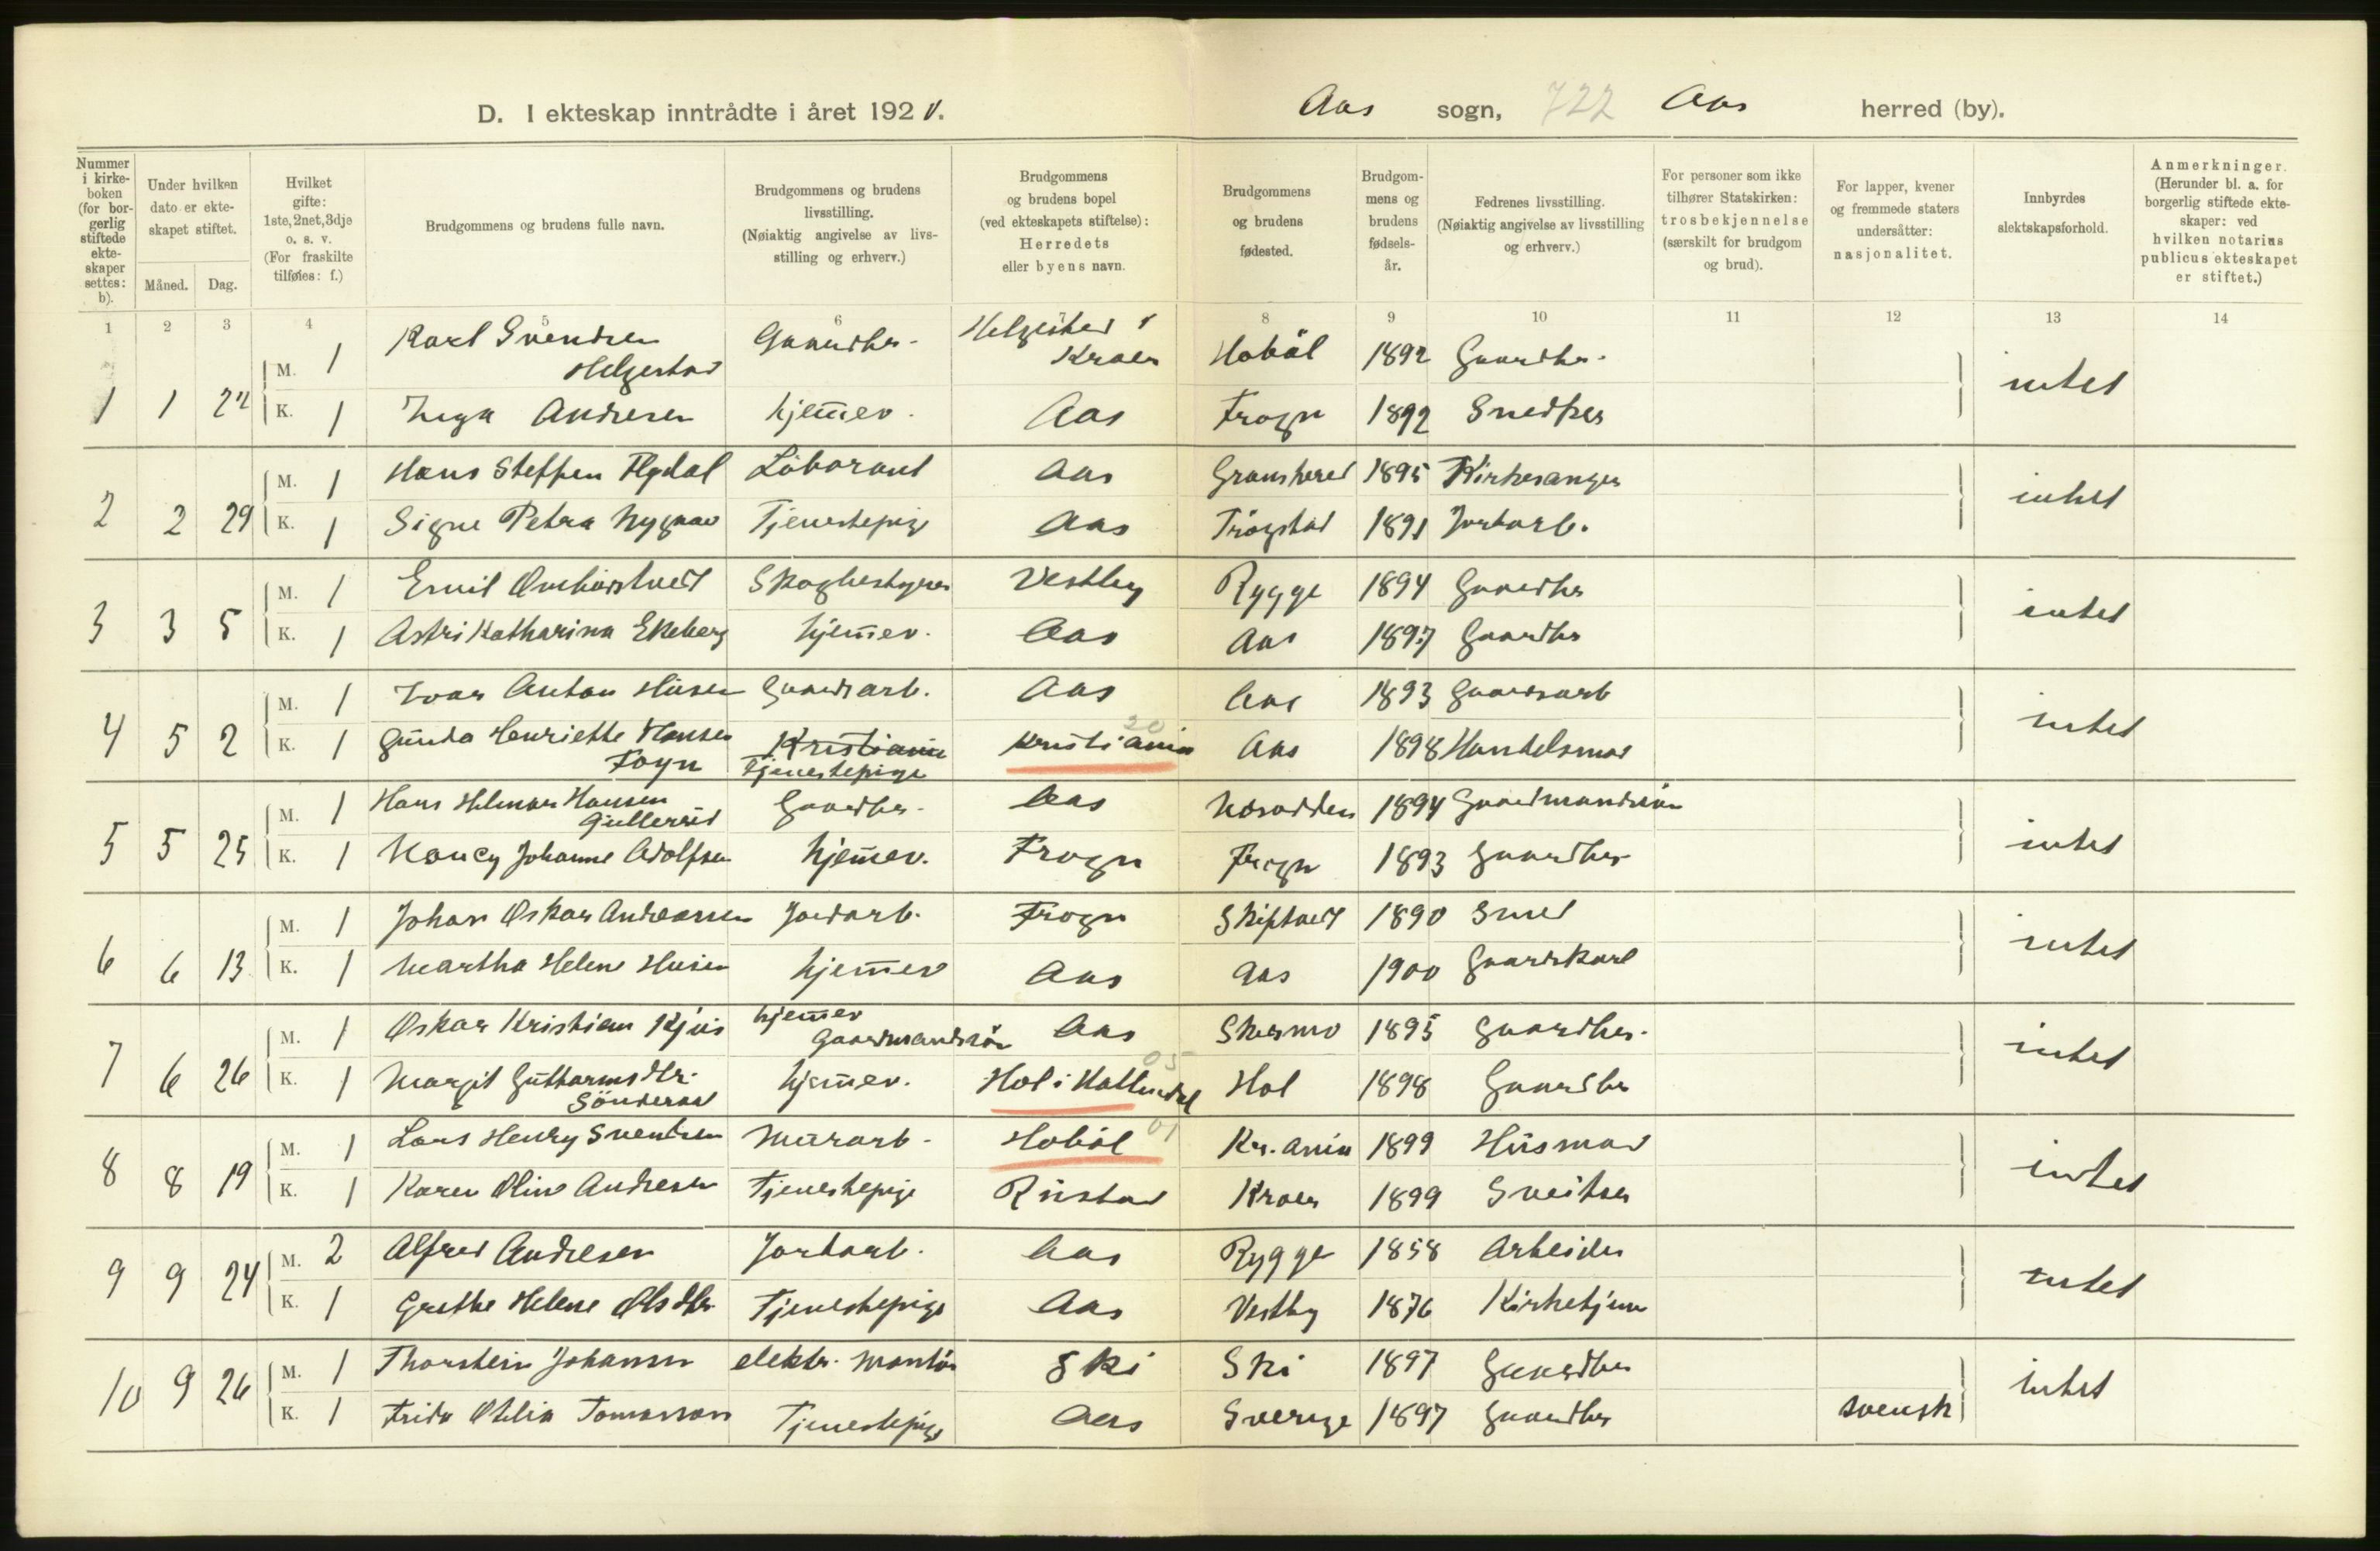 D. I ekteskap inntrådte i året 192
Aas sogn, 722 Aas herred (by).
Nummer i kirkeboken (for borgerlig stiftede ekteskaper settes: b).
Under hvilken dato er ekteskapet stiftet.
Måned. Dag.
Hvilket gifte: 1ste, 2net, 3dje o. s. v. (For fraskilte tilføies: f.)
Brudgommens og brudens fulle navn.
Brudgommens og brudens livsstilling. (Nøiaktig angivelse av livsstilling og erhverv.)
Brudgommens og brudens bopel (ved ekteskapets stiftelse): Herredets eller byens navn.
Brudgommens og brudens fødested.
Brudgommens og brudens fødselsår.
Fedrenes livsstilling. (Nøiaktig angivelse av livsstilling og erhverv.)
For personer som ikke tilhører Statskirken: trosbekjennelse (særskilt for brudgom og brud).
For lapper, kvener og fremmede staters undersåtter: nasjonalitet.
Innbyrdes slektskapsforhold.
Anmerkninger. (Herunder bl. a. for borgerlig stiftede ekteskaper: ved hvilken notarius publicus ekteskapet er stiftet.)
1 2 3 4 5 6 7 8 9 10 11 12 13 14
M. 1 Karl Svendsen Helgestad Gaardbr. Helgestad i Kraer Hobøl 1892 Gaardbr.
1 1 22 K. 1 Inga Andresen hjemmev. Aas Frogn 1892 Snedker intet
M. 1 Hans Steffen Laborant Aas Gransherred 1895 Kirkesanger
2 2 29 K. 1 Signe Petra Tjenestepige Aas Trøgstad 1891 Jordarb. intet
M. 1 Emil Skogbestyrer Vestby Rygge 1894 Gaardbr
3 3 5 K. 1 Astri Katharina Ekeberg hjemmev. Aas Aas 1897 Gaardbr intet
M. 1 Ivar Anton Husen Gaardsarb. Aas Aas 1893 Gaardsarb
4 5 2 K. 1 Gunda Henriette Hansen Foyn Kristiania Tjenestepige Kristiania 20 Aas 1898 Handelsmand intet
M. 1 Hans Helmer Hansen Gullerud Gaardbr. Aas Nesodden 1894 Gaardmandssøn
5 5 25 K. 1 Nancy Johanne Adolfsen hjemmev. Frogn Frogn 1893 Gaardbr intet
M. 1 Johan Oskar Andreassen Jordarb. Frogn Skiptvedt 1890 Smed
6 6 13 K. 1 Martha Helene Husen hjemmev Aas Aas 1900 Gaardskarl intet
M. 1 Oskar Kristian hjemmev Gaardmandssøn Aas 1895 Gaardbr.
7 6 26 K. 1 Margit Guttormsdtr. hjemmev. Hol i Hallindal 05 Hol 1898 Gaardbr intet
M. 1 Lars Henry Svendsen Murarb. Hobøl 01 Kr.ania 1899 Husmand
8 8 19 K. 1 Karen Oline Andresen Tjenestepige Rustad Kraer 1899 Sveitser intet
M. 2 Alfred Andresen Jordarb. Aas Rygge 1858 Arbeider
9 9 24 K. 1 Grethe Helene Olsdtr. Tjenestepige Aas Vestby 1876 Kirketjener intet
M. 1 Thorstein Johansen elektr. montør Ski Ski 1897 Gaardbr
10 9 26 K. 1 Frida Otilia Tomasson Tjenestepige Aas Sverige 1897 Gaardbr svensk intet